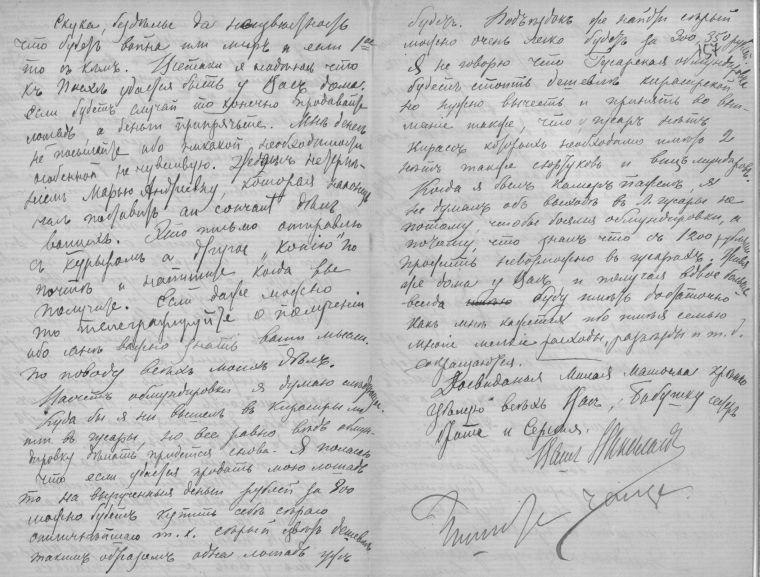 Скука, безделье да неизвестность
что будет война или миръ и если 1ое
то съ кемъ.
къ Пасхѣ удастся быть у Васъ дома.
Если будетъ случай то конечно продавайте
лошадь, а деньги припрячьте. Мнѣ денегъ
не посылайте ибо никакой необходимости
особенной не чувствую.
Марью Андреевну, которая
au courant дѣлъ
вашихъ. Это письмо отправлю
съ курьеромъ а другое „копію" по
почтѣ и напишите когда вы
получите. Если даже можно
то телеграфируйте о полученіи
ибо мнѣ важно знать ваши мысли
по поводу всѣхъ моихъ дѣлъ.
Насчетъ обмундировки я думаю
Куда бы я ни вышелъ въ кирасиры ли
или въ гусары, но все равно
дѣлать придется снова. Я полагаю
что если удастся продать мою лошадь
то на вырученныя деньги рублей за 800
можно будетъ купить себѣ
т. к. старый
такимъ образомъ одна лошадь ужъ
будетъ. Подъѣздокъ же найти старый
можно очень легко будетъ за 300, 350 рублей
157
Я не говорю что Гусарская обмундировка
будетъ стоить дешевле кирасирской
но нужно вычесть и принять во вни-
маніе также, что у гусаръ нѣтъ
кирасъ которыхъ необходимо имѣть 2
нѣтъ также сюртуковъ и вицъ мундировъ.
Когда я былъ камеръ пажемъ, я
не думалъ объ выходѣ въ Л. гусары не
потому, чтобы боялся обмундировки, а
потому, что зналъ что съ 1200 рублями
прожить невозможно въ гусарахъ.
же дома у Васъ и получая вдвое больше
всегда буду имѣть достаточно
какъ мнѣ кажется ибо имѣя семью
многіе мелкіе расходы, разъѣзды и т. д.
сокращаются.
Досвиданія Милая Мамочка крѣпко
цѣлую всѣхъ Васъ, Бабушку сестру
брата и Сергѣя.
Вашъ
Пишите чаще.